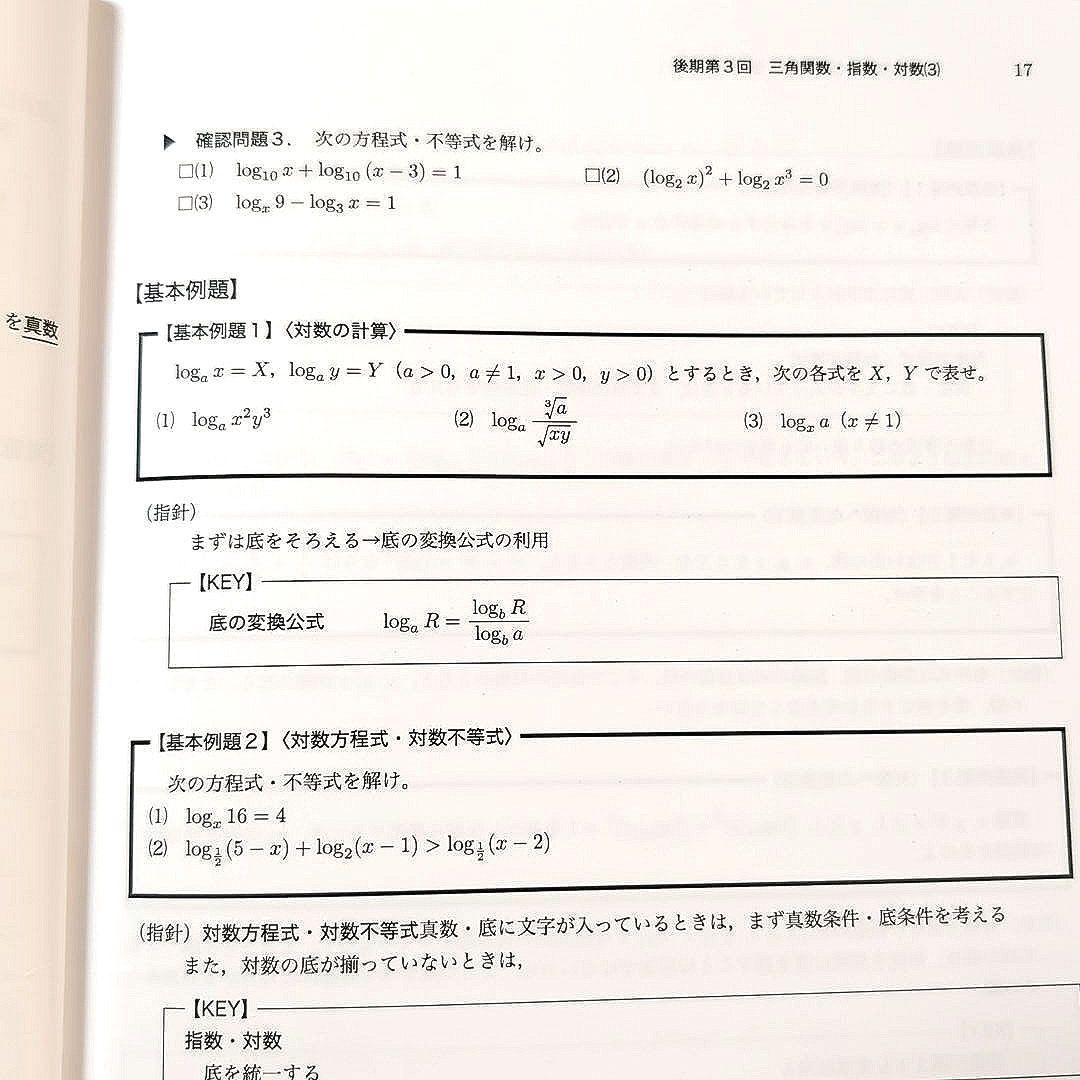 後期第3回 三角関数・指数・対数(3) 17
▶ 確認問題3. 次の方程式・不等式を解け。
□(1) log₁₀ x + log₁₀ (x − 3) = 1 □(2) (log₂ x)² + log₂ x³ = 0
□(3) logₓ 9 − log₃ x = 1
を真数
【基本例題】
【基本例題1】〈対数の計算〉
logₐ x = X, logₐ y = Y (a > 0, a ≠ 1, x > 0, y > 0) とするとき, 次の各式を X, Y で表せ。
(1) logₐ x²y³ (2) logₐ ∛a/√(xy) (3) logₓ a (x ≠ 1)
(指針)
まずは底をそろえる→底の変換公式の利用
【KEY】
底の変換公式 logₐ R = log_b R / log_b a
【基本例題2】〈対数方程式・対数不等式〉
次の方程式・不等式を解け。
(1) logₓ 16 = 4
(2) log_{1/2}(5 − x) + log₂(x − 1) > log_{1/2}(x − 2)
(指針) 対数方程式・対数不等式真数・底に文字が入っているときは, まず真数条件・底条件を考える
また, 対数の底が揃っていないときは,
【KEY】
指数・対数
底を統一する